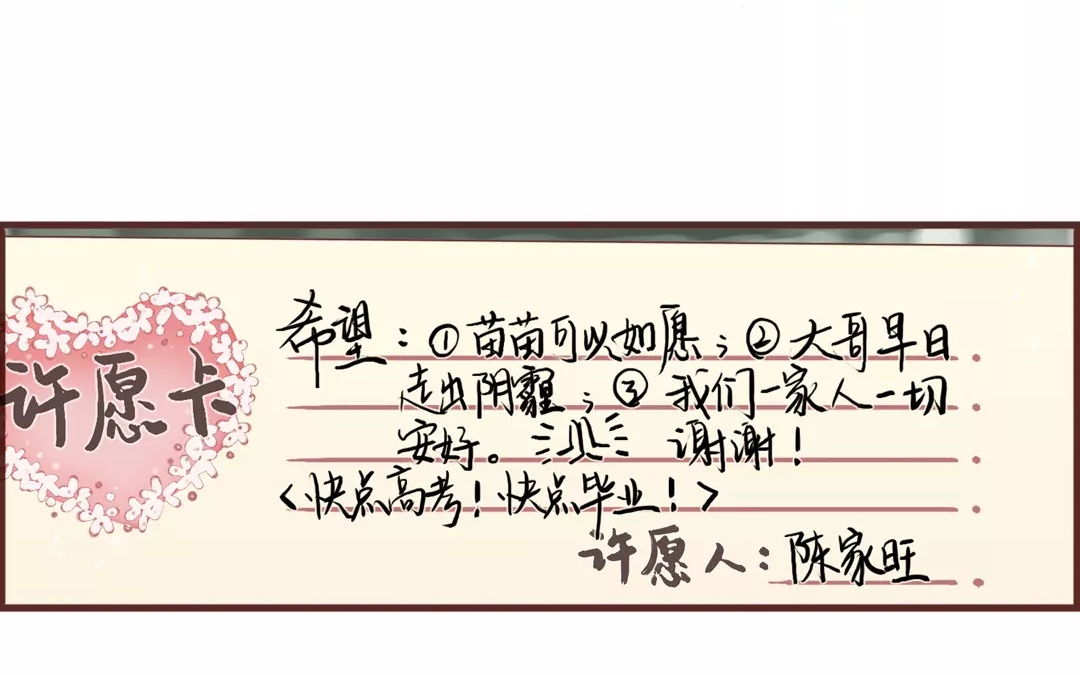 许愿卡
希望：①苗苗可以如愿；②大哥早日
走出阴霾；③我们一家人一切
安好。谢谢！
<快点高考！快点毕业！>
许愿人：陈家旺